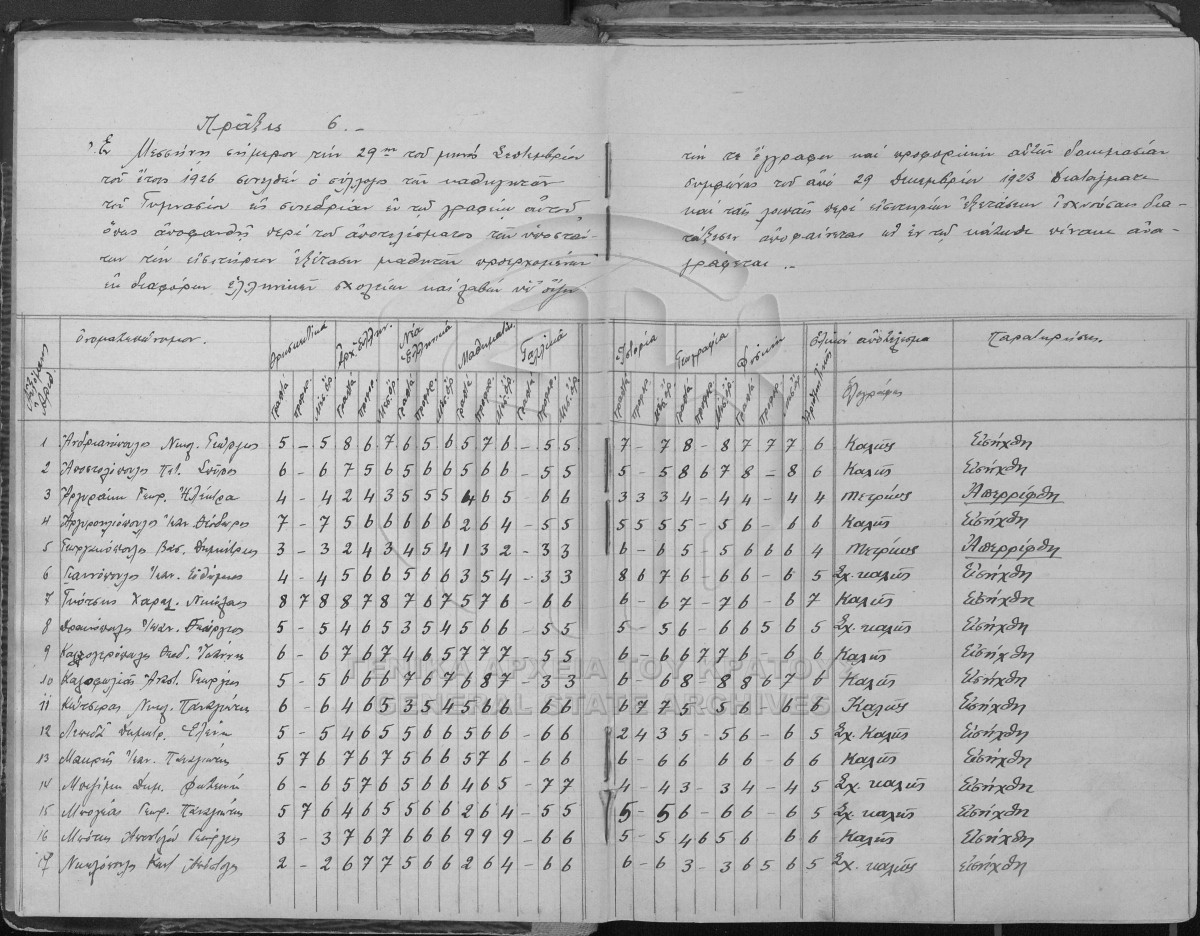 Πρᾶξις 6. –
Ἐν Μεσσήνῃ σήμερον τὴν 29ην τοῦ μηνός Σεπτεμβρίου
τοῦ ἔτους 1926 συνελθὼν ὁ σύλλογος τῶν καθηγητῶν
τοῦ Γυμνασίου εἰς συνεδρίαν ἐν τῷ γραφείῳ αὐτοῦ
ὅπως ἀποφανθῇ περὶ τοῦ ἀποτελέσματος τῶν ὑποστάν-
των τὴν εἰσιτήριον ἐξέτασιν μαθητῶν προερχομένων
ἐκ διαφόρων ἑλληνικῶν σχολείων καὶ λαβὼν ὑπ' ὄψιν
τήν τε ἔγγραφον καὶ προφορικὴν αὐτῶν δοκιμασίαν
συμφώνως τῷ ἀπό 29 Δεκεμβρίου 1923 Διατάγματι
καὶ ταῖς λοιπαῖς περὶ εἰσιτηρίων ἐξετάσεων ἰσχυούσαις δια-
τάξεσιν ἀποφαίνεται ὡς ἐν τῷ κάτωθι πίνακι ἀνα-
γράφεται. –
Αὔξων Ἀριθ. Ὀνοματεπώνυμον. Θρησκευτικά Ἀρχ. Ἑλλην. Νέα Ἑλληνικά Μαθηματικ. Γαλλικά Ἱστορία Γεωγραφία Φυσική Εἰδικὸν ἀποτέλεσμα Παρατηρήσεις.
Γραπτά προφορ. Μέσ. ὅρ. Γραπτά προφορ. Μέσ. ὅρ. Γραπτά προφορ. Μέσ. ὅρ. Γραπτά προφορ. Μέσ. ὅρ. Γραπτά προφορ. Μέσ. ὅρ. Γραπτά προφορ. Μέσ. ὅρ. Γραπτά προφορ. Μέσ. ὅρ. Γραπτά προφορ. Μέσ. ὅρ. Ἀριθμητικῶς Ὁλογράφως
1 Ἀνδριανόπουλος Νικολ. Γεώργιος 5 – 5 8 6 7 6 5 6 5 7 6 – 5 5 7 – 7 8 – 8 7 7 7 6 Καλῶς Εἰσήχθη
2 Ἀποστολόπουλος Πέτ. Σπῦρος 6 – 6 7 5 6 5 6 6 5 6 6 – 5 5 5 – 5 8 6 7 8 – 8 6 Καλῶς Εἰσήχθη
3 Ἀργυράκη Γεωρ. Ἠλέκτρα 4 – 4 2 4 3 5 5 5 4 6 5 – 6 6 3 3 3 4 – 4 4 – 4 4 Μετρίως Ἀπερρίφθη
4 Ἀργυροηλιόπουλος Ἰωάν. Θεόδωρος 7 – 7 5 6 6 6 6 6 2 6 4 – 5 5 5 5 5 5 – 5 6 – 6 6 Καλῶς Εἰσήχθη
5 Γεωργακόπουλος Βασ. Δημήτριος 3 – 3 2 4 3 4 5 4 1 3 2 – 3 3 6 – 6 5 – 5 6 6 6 4 Μετρίως Ἀπερρίφθη
6 Γιαννόπουλος Ἰωαν. Εὐθύμιος 4 – 4 5 6 6 5 6 6 3 5 4 – 3 3 8 6 7 6 – 6 6 – 6 5 Σχ. καλῶς Εἰσήχθη
7 Γκότσης Χαραλ. Νικόλαος 8 7 8 8 7 8 7 6 7 5 7 6 – 6 6 6 – 6 7 – 7 6 – 6 7 Καλῶς Εἰσήχθη
8 Δρακόπουλος Ἰωάν. Γεώργιος 5 – 5 4 6 5 3 5 4 5 6 6 – 5 5 5 – 5 6 – 6 6 5 6 5 Σχ. καλῶς Εἰσήχθη
9 Καλογερόπουλος Θεοδ. Ἰωάννης 6 – 6 7 6 7 4 6 5 7 7 7 – 5 5 6 – 6 6 7 7 6 – 6 6 Καλῶς Εἰσήχθη
10 Καλοφωλιᾶς Ἀναστ. Γεώργιος 5 – 5 6 6 6 7 6 7 6 8 7 – 3 3 6 – 6 8 – 8 8 6 7 6 Καλῶς Εἰσήχθη
11 Κότσιρας Νικολ. Παναγιώτης 6 – 6 4 6 5 3 5 4 5 6 6 – 6 6 6 7 7 5 – 5 6 – 6 6 Καλῶς Εἰσήχθη
12 Δημητρ. Ἑλένη 5 – 5 4 6 5 5 6 6 5 6 6 – 6 6 2 4 3 5 – 5 6 – 6 5 Σχ. Καλῶς Εἰσήχθη
13 Μακρῆς Ἰωαν. Παναγιώτης 5 7 6 7 6 7 5 6 6 5 7 6 – 6 6 6 – 6 6 – 6 6 – 6 6 Καλῶς Εἰσήχθη
14 Δημ. Φωτεινή 6 – 6 5 7 6 5 6 6 4 6 5 – 7 7 4 – 4 3 – 3 4 – 4 5 Σχ. καλῶς Εἰσήχθη
15 Γεωρ. Παναγιώτης 5 7 6 4 6 5 5 6 6 2 6 4 – 5 5 5 – 5 6 – 6 6 – 6 5 Σχ. καλῶς Εἰσήχθη
16 Μπότης Ἀποστόλου Γεώργιος 3 – 3 7 6 7 6 6 6 9 9 9 – 6 6 5 – 5 4 6 5 6 – 6 6 Καλῶς Εἰσήχθη
17 Νικολόπουλος Κων/ Ἀπόστολος 2 – 2 6 7 7 5 6 6 2 6 4 – 6 6 6 – 6 3 – 3 6 5 6 5 Σχ. καλῶς Εἰσήχθη
ΓΕΝΙΚΑ ΑΡΧΕΙΑ ΤΟΥ ΚΡΑΤΟΥΣ
GENERAL STATE ARCHIVES